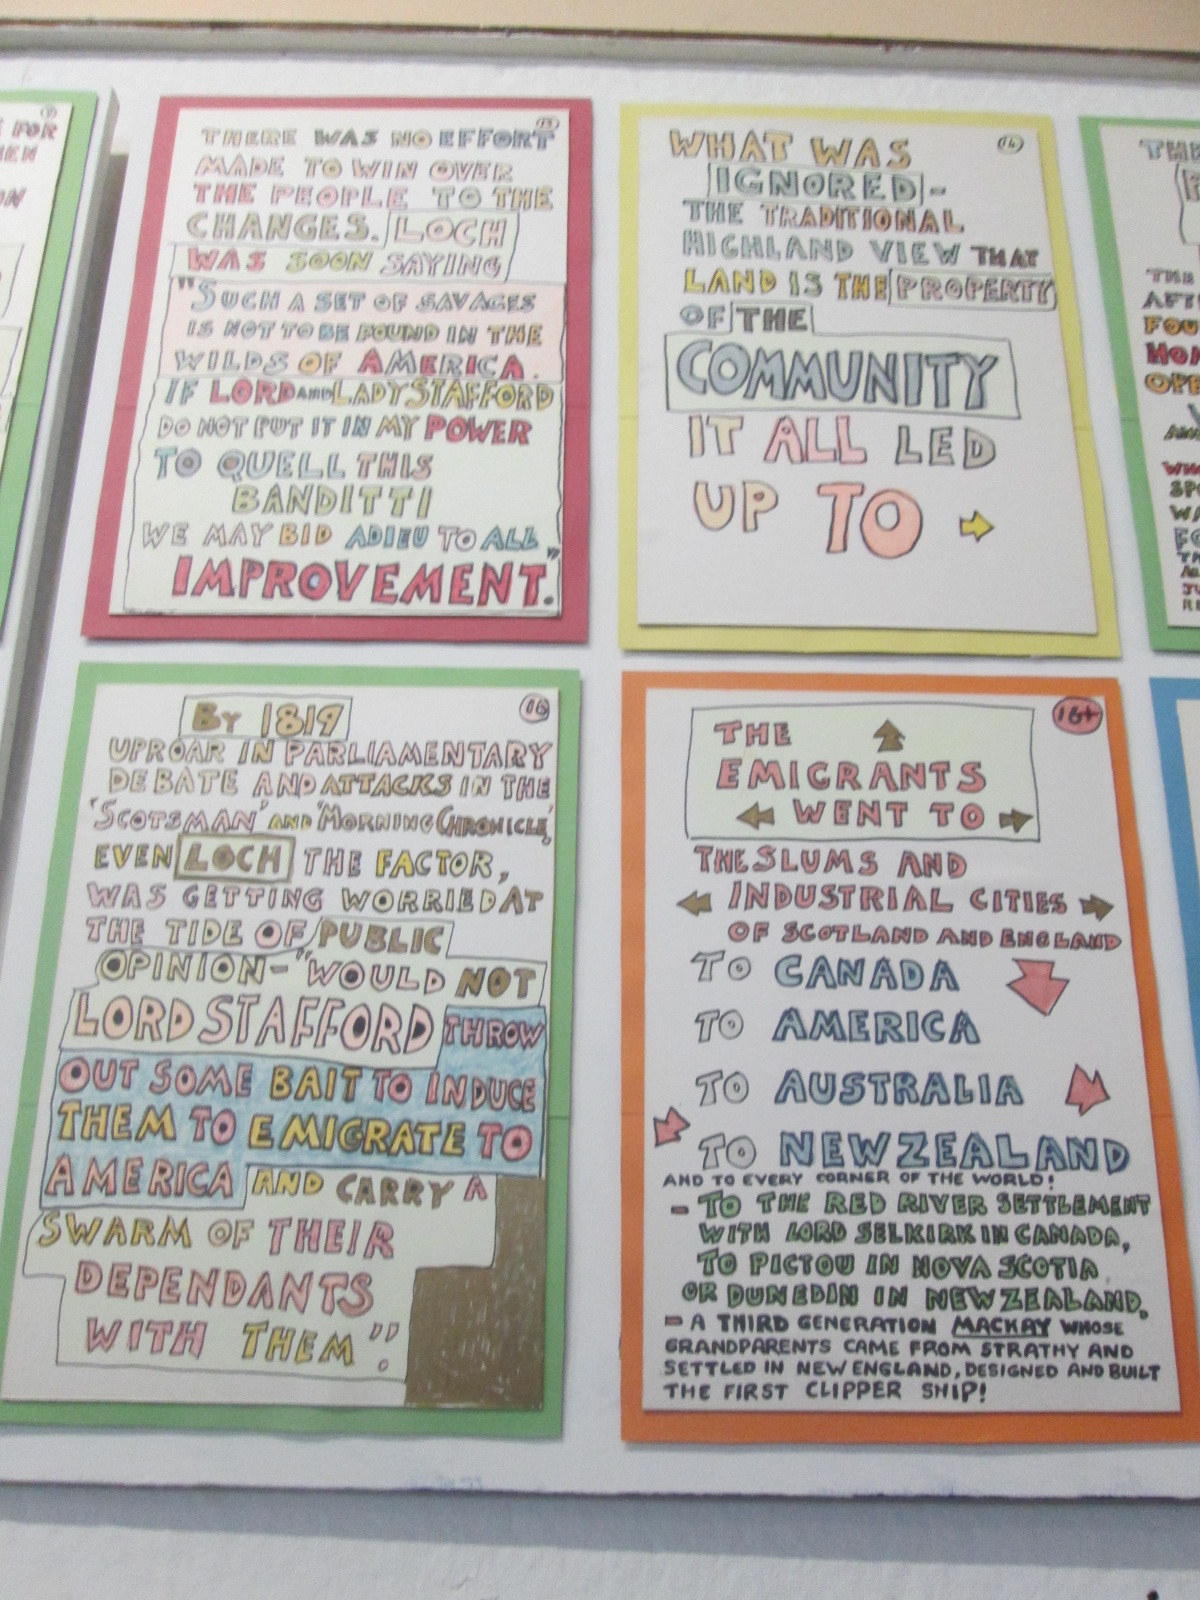 FOR
13
THERE WAS NO EFFORT
MADE TO WIN OVER
THE PEOPLE TO THE
CHANGES. LOCH
WAS SOON SAYING
"SUCH A SET OF SAVAGES
IS NOT TO BE FOUND IN THE
WILDS OF AMERICA.
IF LORD AND LADY STAFFORD
DO NOT PUT IT IN MY POWER
TO QUELL THIS
BANDITTI
WE MAY BID ADIEU TO ALL
IMPROVEMENT."
14
WHAT WAS
IGNORED -
THE TRADITIONAL
HIGHLAND VIEW THAT
LAND IS THE PROPERTY
OF THE
COMMUNITY
IT ALL LED
UP TO
16
BY 1819
UPROAR IN PARLIAMENTARY
DEBATE AND ATTACKS IN THE
'SCOTSMAN' AND 'MORNING CHRONICLE',
EVEN LOCH THE FACTOR,
WAS GETTING WORRIED AT
THE TIDE OF PUBLIC
OPINION - "WOULD NOT
LORD STAFFORD THROW
OUT SOME BAIT TO INDUCE
THEM TO EMIGRATE TO
AMERICA AND CARRY A
SWARM OF THEIR
DEPENDANTS
WITH THEM".
16+
THE
EMIGRANTS
WENT TO
THE SLUMS AND
INDUSTRIAL CITIES
OF SCOTLAND AND ENGLAND
TO CANADA
TO AMERICA
TO AUSTRALIA
TO NEW ZEALAND
AND TO EVERY CORNER OF THE WORLD!
- TO THE RED RIVER SETTLEMENT
WITH LORD SELKIRK IN CANADA,
TO PICTOU IN NOVA SCOTIA
OR DUNEDIN IN NEW ZEALAND.
- A THIRD GENERATION MACKAY WHOSE
GRANDPARENTS CAME FROM STRATHY AND
SETTLED IN NEW ENGLAND, DESIGNED AND BUILT
THE FIRST CLIPPER SHIP!